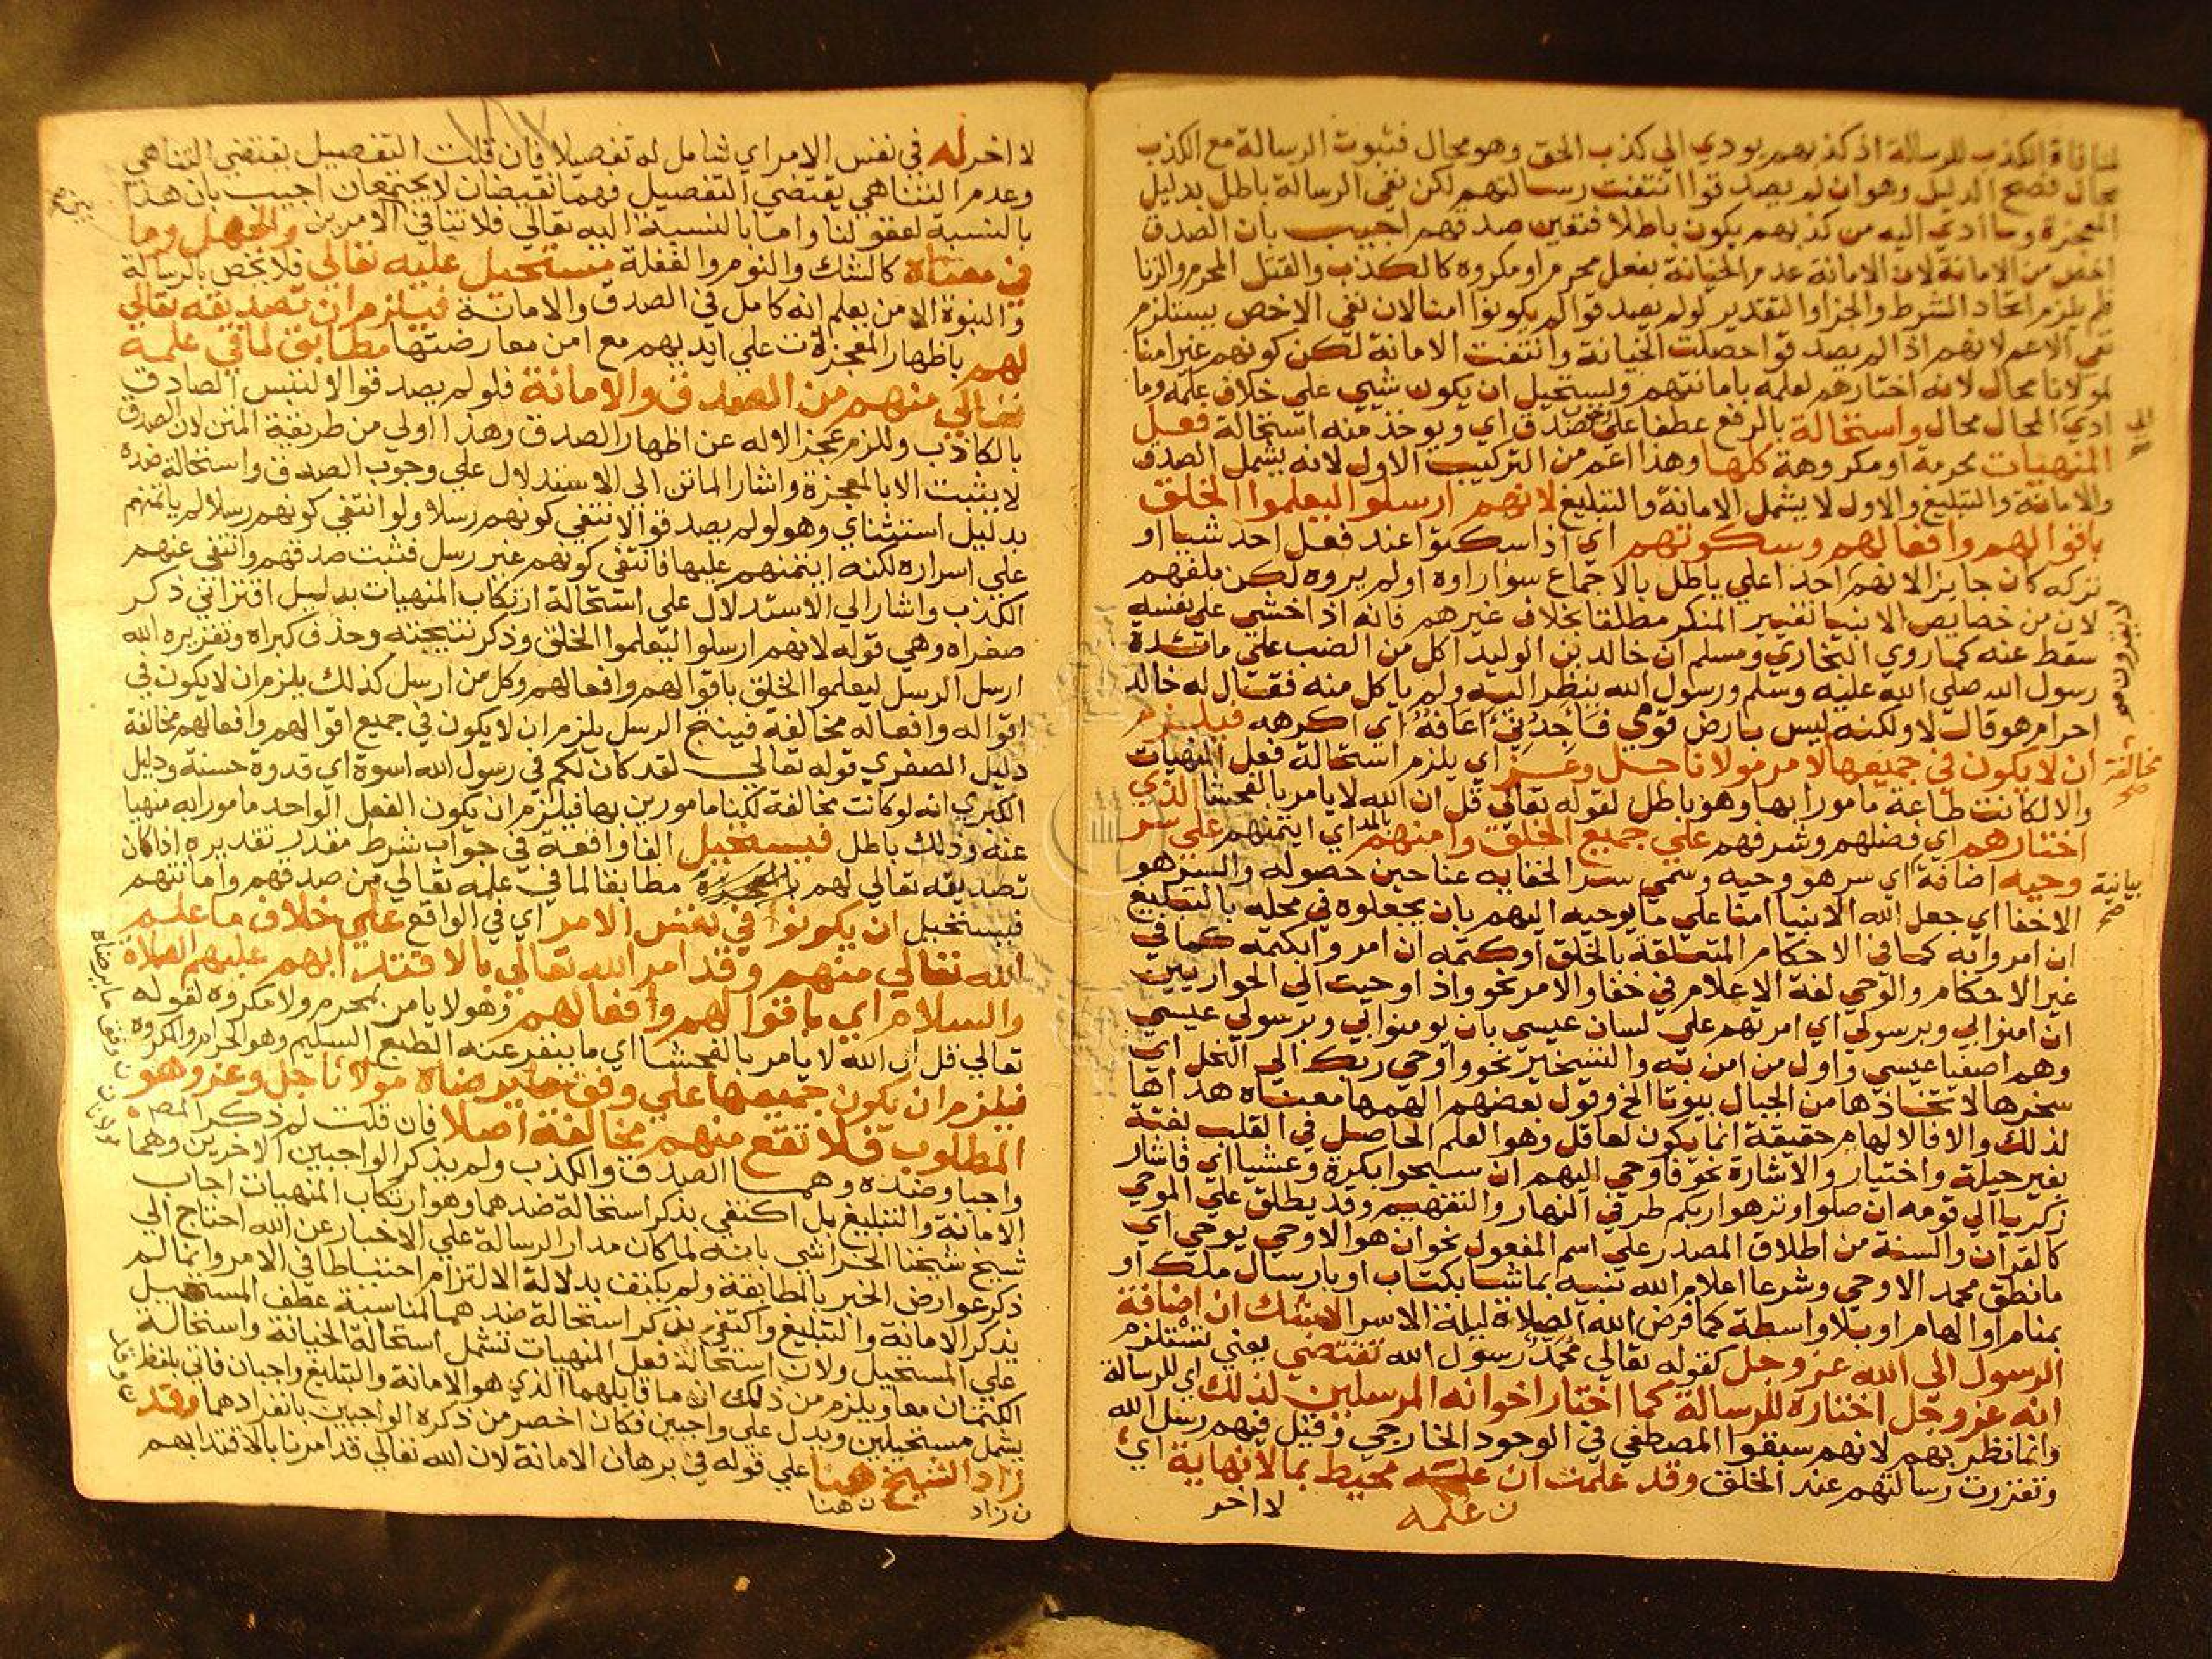 لمنافاة الكذب للرسالة اذ كذبهم يودي الي كذب الحق وهو محال فثبوت الرسالة مع الكذب
محال فصح الدليل وهو ان لم يصدقوا انتفت رسالتهم لكن نفي الرسالة باطل بدليل
المعجزة وما ادي اليه من كذبهم يكون باطلا فتعين صدقهم اجيب بان الصدق
اخص من الامانة لان الامانة عدم الخيانة بفعل محرم او مكروه كالكذب والقتل المحرم والزنا
فلم يلزم اتحاد الشرط والجزا والتقدير لو لم يصدقوا لم يكونوا امنا لان نفي الاخص يستلزم
نفي الاعم لانهم اذا لم يصدقوا حصلت الخيانة وانتفت الامانة لكن كونهم غير امنا
لمولانا محال لانه اختارهم لعلمه بامانتهم ويستحيل ان يكون شيي على خلاف علمه وما
ادي الي المحال محال واستحالة بالرفع عطفا على صدق اي ويوخذ منه استحالة فعل
المنهيات محرمة او مكروهة كلها وهذا اعم من التركيب الاول لانه يشمل الصدق
والامانة والتبليغ والاول لا يشمل الامانة والتبليغ لانهم ارسلوا ليعلموا الخلق
باقوالهم وافعالهم وسكوتهم اي اذا سكتوا عند فعل احد شيا او
تركه كان جايز الانهم احدا علي باطل بالاجماع سوا راوه او لم يروه لكن بلغهم
لان من خصايص الانبيا تغيير المنكر مطلقا بخلاف غيرهم فانه اذا خشي على نفسه
سقط عنه كما روي البخاري ومسلم ان خالد بن الوليد اكل من الضب علي مائدة
رسول الله صلي الله عليه وسلم ورسول الله ينظر اليه ولم ياكل منه فقال له خالد
احرام هو قال لا ولكنه ليس بارض قومي فاجدني اعافه اي اكرهه فيلزم
ان لا يكون في جميعها لامر مولانا جل وعز اي يلزم استحالة فعل المنهيات
والا لكانت طاعة مامورا بها وهو باطل لقوله تعالي قل ان الله لا يامر بالفحشا الذي
اختارهم اي فضلهم وشرفهم علي جميع الخلق وامنهم بالمد اي ايتمنهم علي سر
وحيه اضافة اي سر هو وحيه وسمي سر الخفايه عنا حين حصوله والسر هو
الاخفا اي جعل الله الانبيا امنا علي ما يوحيه اليهم بان يجعلوه في محله بالتبليغ
ان امروا به كما في الاحكام المتعلقة بالخلق او كتمه ان امروا بكتمه كما في
غير الاحكام والوحي لغة الاعلام في خفا والامر نحو واذ اوحيت الي الحواريين
ان امنوا بي وبرسولي اي امرتهم علي لسان عيسي بان يومنوا بي وبرسولي عيسي
وهم اصفيا عيسي واول من امن به والتسخير نحو واوحي ربك الي النحل اي
سخرها لاتخاذها من الجبال بيوتا الخ وقول بعضهم الهمها معناه هداها
لذلك والا فالالهام حقيقة انما يكون لعاقل وهو العلم الحاصل في القلب بغتة
بغير حيلة واختيار والاشارة نحو فاوحي اليهم ان سبحوا بكرة وعشيا اي فاشار
زكريا الي قومه ان صلوا او نزهوا ربكم طرفي النهار والتفهيم وقد يطلق علي الموحي
كالقران والسنة من اطلاق المصدر علي اسم المفعول نحو ان هو الا وحي يوحي اي
ما نطق محمد الا وحي وشرعا اعلام الله نبيه بما شا بكتاب او بارسال ملك او
بمنام او الهام او بلا واسطة كما فرض الله الصلاة ليلة الاسرا لا شك ان اضافة
الرسول الي الله عز وجل كقوله تعالي محمد رسول الله تقتضي يعني تستلزم
انه عز وجل اختاره للرسالة كما اختار اخوانه المرسلين لذلك اي للرسالة
وانما نظر بهم لانهم سبقوا المصطفي في الوجود الخارجي وقيل فيهم رسل الله
وتقررت رسالتهم عند الخلق وقد علمت ان علمه محيط بما لا نهاية اي
ن علمه
لا اخر
الي
لا يقرون صح
مخالفة صح
بيانية صح
لا اخر له في نفس الامر اي شامل له تفصيلا فان قلت التفصيل يقتضي التناهي
وعدم التناهي يقتضي التفصيل وهما نقيضان لا يجتمعان اجيب بان هذا
بالنسبة لعقولنا واما بالنسبة اليه تعالي فلا تنافي الامرين والجهل وما
في معناه كالشك والنوم والغفلة مستحيل عليه تعالي فلا يخص بالرسالة
والنبوة الا من يعلم انه كامل في الصدق والامانة فيلزم ان تصديقه تعالي
لهم باظهار المعجزات علي ايديهم مع امن معارضتها مطابق لما في علمه
تعالي منهم من الصدق والامانة فلو لم يصدقوا لالتبس الصادق
بالكاذب وللزم عجز الاله عن اظهار الصدق وهذا اولي من طريقة المتن لان الصدق
لا يثبت الا بالمعجزة واشار الماتن الي الاستدلال علي وجوب الصدق واستحالة ضده
بدليل استثنائي وهو لو لم يصدقوا لانتفي كونهم رسلا ولو انتفي كونهم رسلا لم ياتمنهم
علي اسراره لكنه ايتمنهم عليها فانتفي كونهم غير رسل فثبت صدقهم وانتفي عنهم
الكذب واشار الي الاستدلال علي استحالة ارتكاب المنهيات بدليل اقتراني ذكر
صغراه وهي قوله لانهم ارسلوا ليعلموا الخلق وذكر نتيجته وحذف كبراه وتقريره الله
ارسل الرسل ليعلموا الخلق باقوالهم وافعالهم وكل من ارسل كذلك يلزم ان لا يكون في
اقواله وافعاله مخالفة فينتج الرسل يلزم ان لا يكون في جميع اقوالهم وافعالهم مخالفة
دليل الصغري قوله تعالي لقد كان لكم في رسول الله اسوة اي قدوة حسنة ودليل
الكبري انه لو كانت مخالفة لكنا مامورين بها فيلزم ان يكون الفعل الواحد مامورا به منهيا
عنه وذلك باطل فيستحيل الفا واقعة في جواب شرط مقدر تقديره اذا كان
تصديقه تعالي لهم بالمعجزة مطابقا لما في علمه تعالي من صدقهم وامانتهم
فيستحيل ان يكونوا في نفس الامر اي في الواقع علي خلاف ما علم
الله تعالي منهم وقد امر الله تعالي بالاقتدا بهم عليهم الصلاة
والسلام اي باقوالهم وافعالهم وهو لا يامر بمحرم ولا مكروه لقوله
تعالي قل ان الله لا يامر بالفحشا اي ما ينفر عنه الطبع السليم وهو الحرام والمكروه
فيلزم ان يكون جميعها علي وفق ما يرضاه مولانا جل وعز وهو
المطلوب فلا تقع منهم مخالفة اصلا فان قلت لم ذكر المص
واجبا وضده وهما الصدق والكذب ولم يذكر الواجبين الاخرين وهما
الامانة والتبليغ بل اكتفي بذكر استحالة ضدهما وهو ارتكاب المنهيات اجاب
شيخ شيخنا الخراشي بانه لما كان مدار الرسالة علي الاخبار عن الله احتاج الي
ذكر عوارض الخبر بالمطابقة ولم يكتف بدلالة الالتزام احتياطا في الامر وانما لم
يذكر الامانة والتبليغ واكتفي بذكر استحالة ضدهما لمناسبة عطف المستحيل
علي المستحيل ولان استحالة فعل المنهيات تشمل استحالة الخيانة واستحالة
الكتمان معا ويلزم من ذلك ان ما قابلهما الذي هو الامانة والتبليغ واجبان فاتي بلفظ
يشمل مستحيلين ويدل علي واجبين فكان اخصر من ذكره الواجبين بانفرادهما وقد
زاد الشيخ هنا علي قوله في برهان الامانة لان الله تعالي قد امرنا بالاقتدا بهم
ن زاد
ن هنا